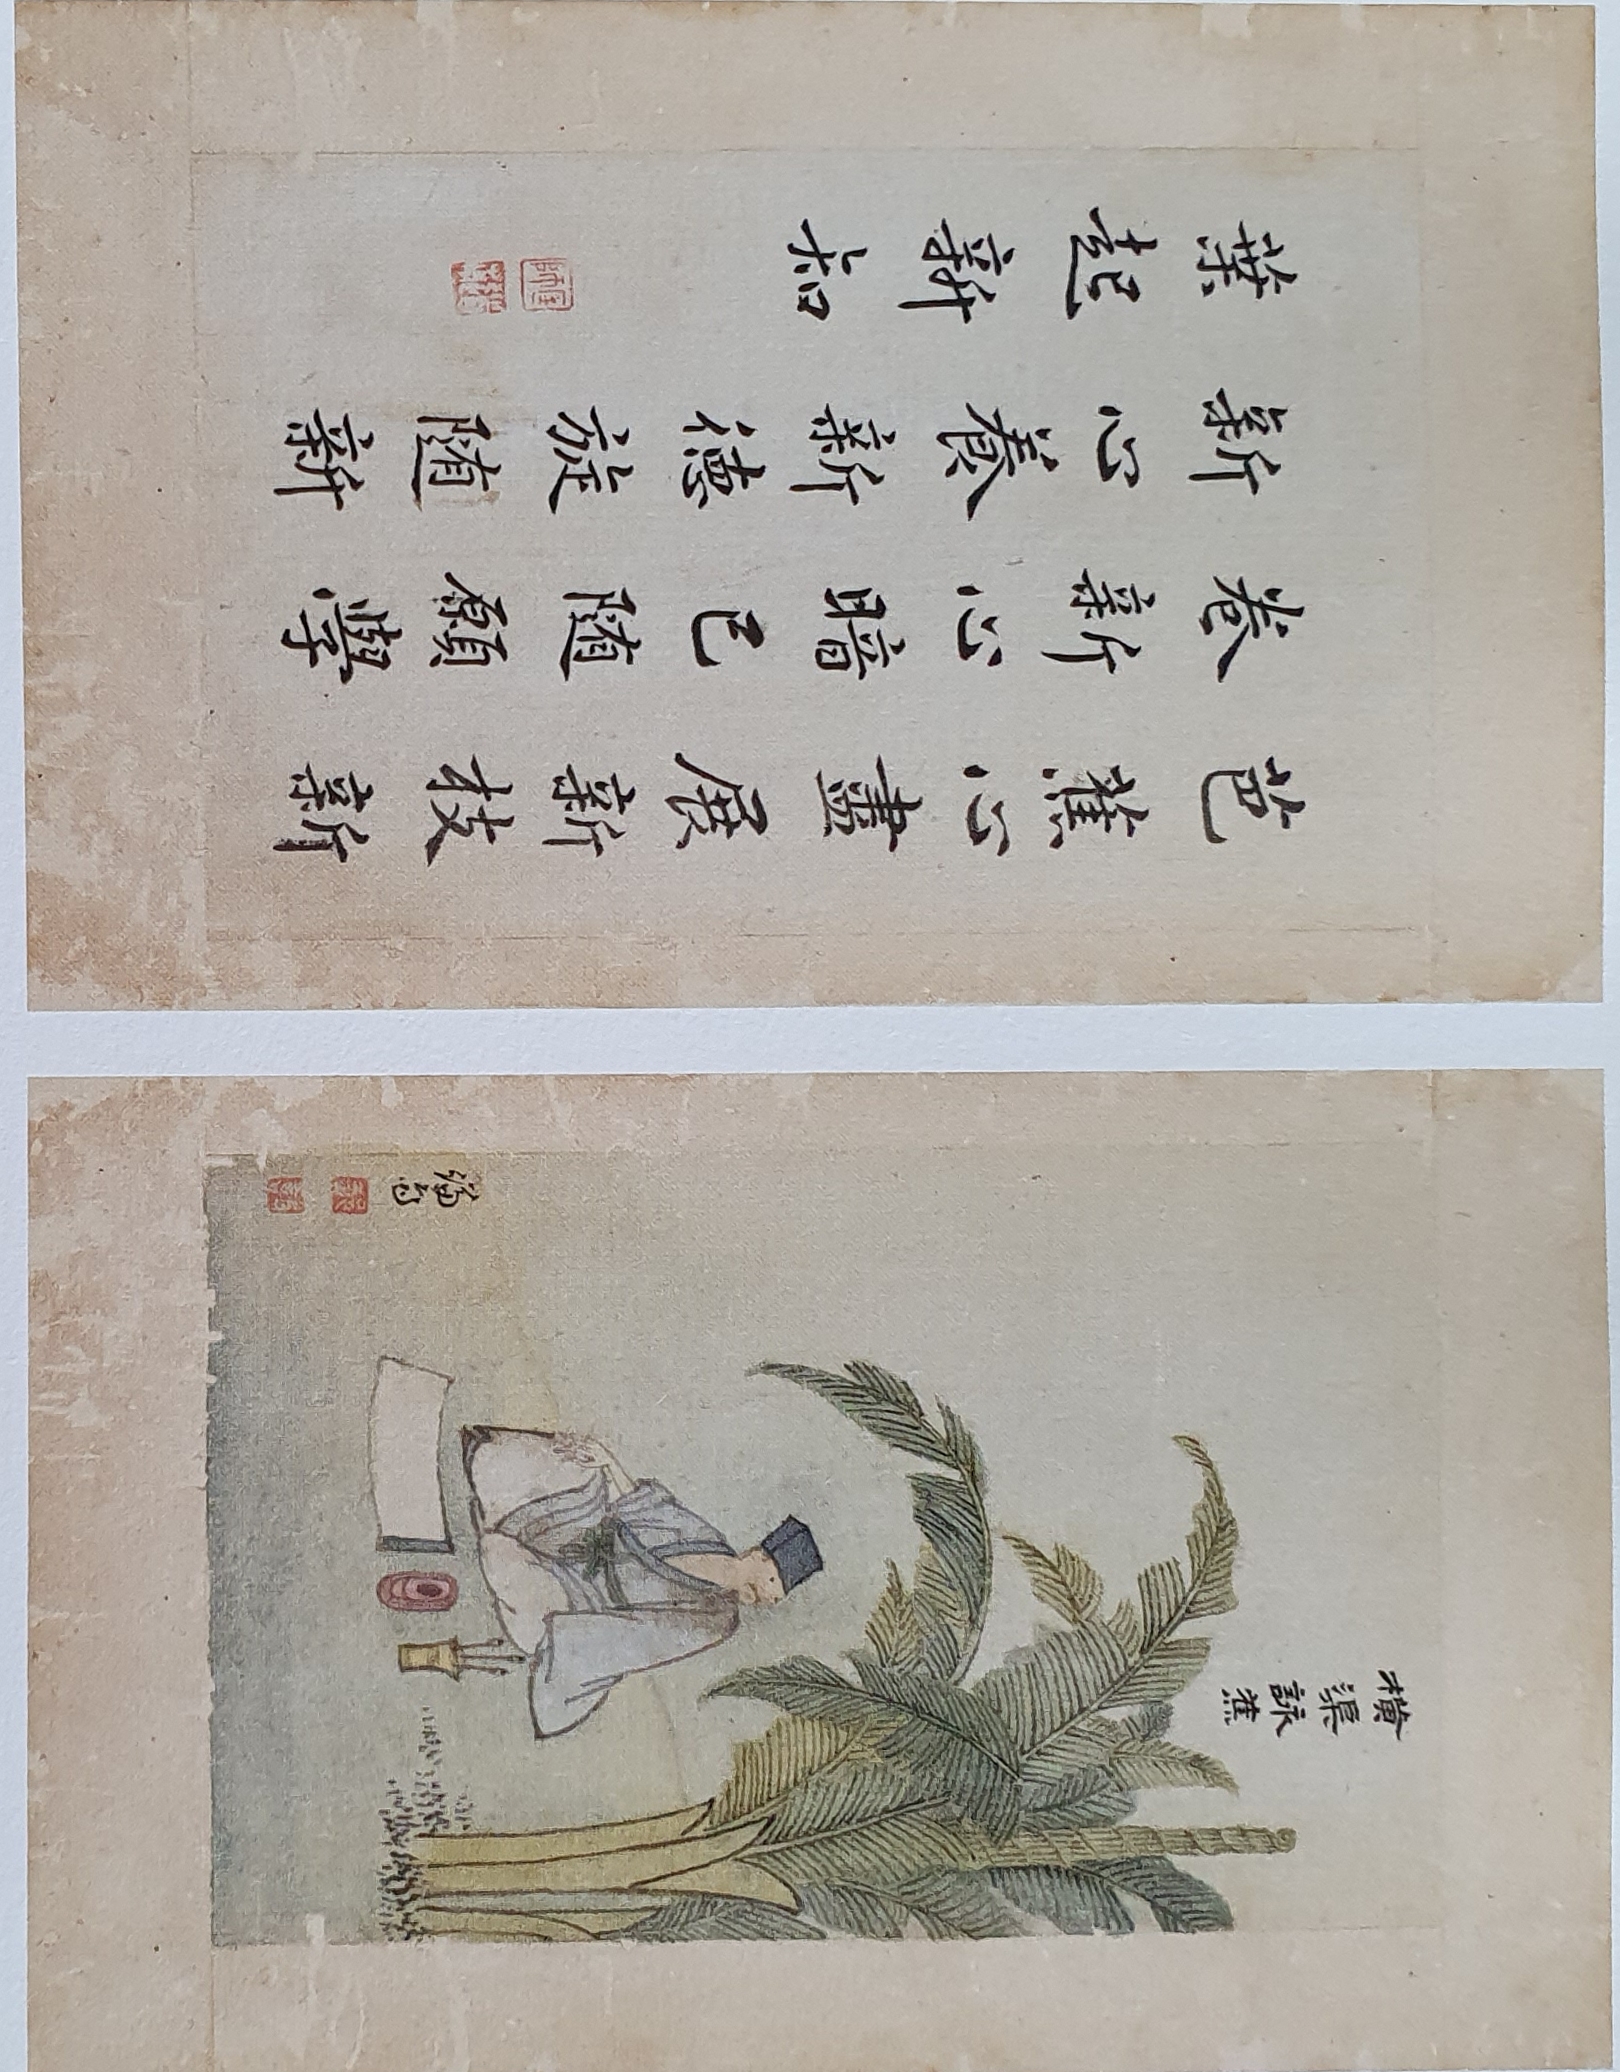 橫渠詠蕉
芭蕉心盡展新枝新
卷新心暗已隨願學
新心養新德旋隨新
葉起新知